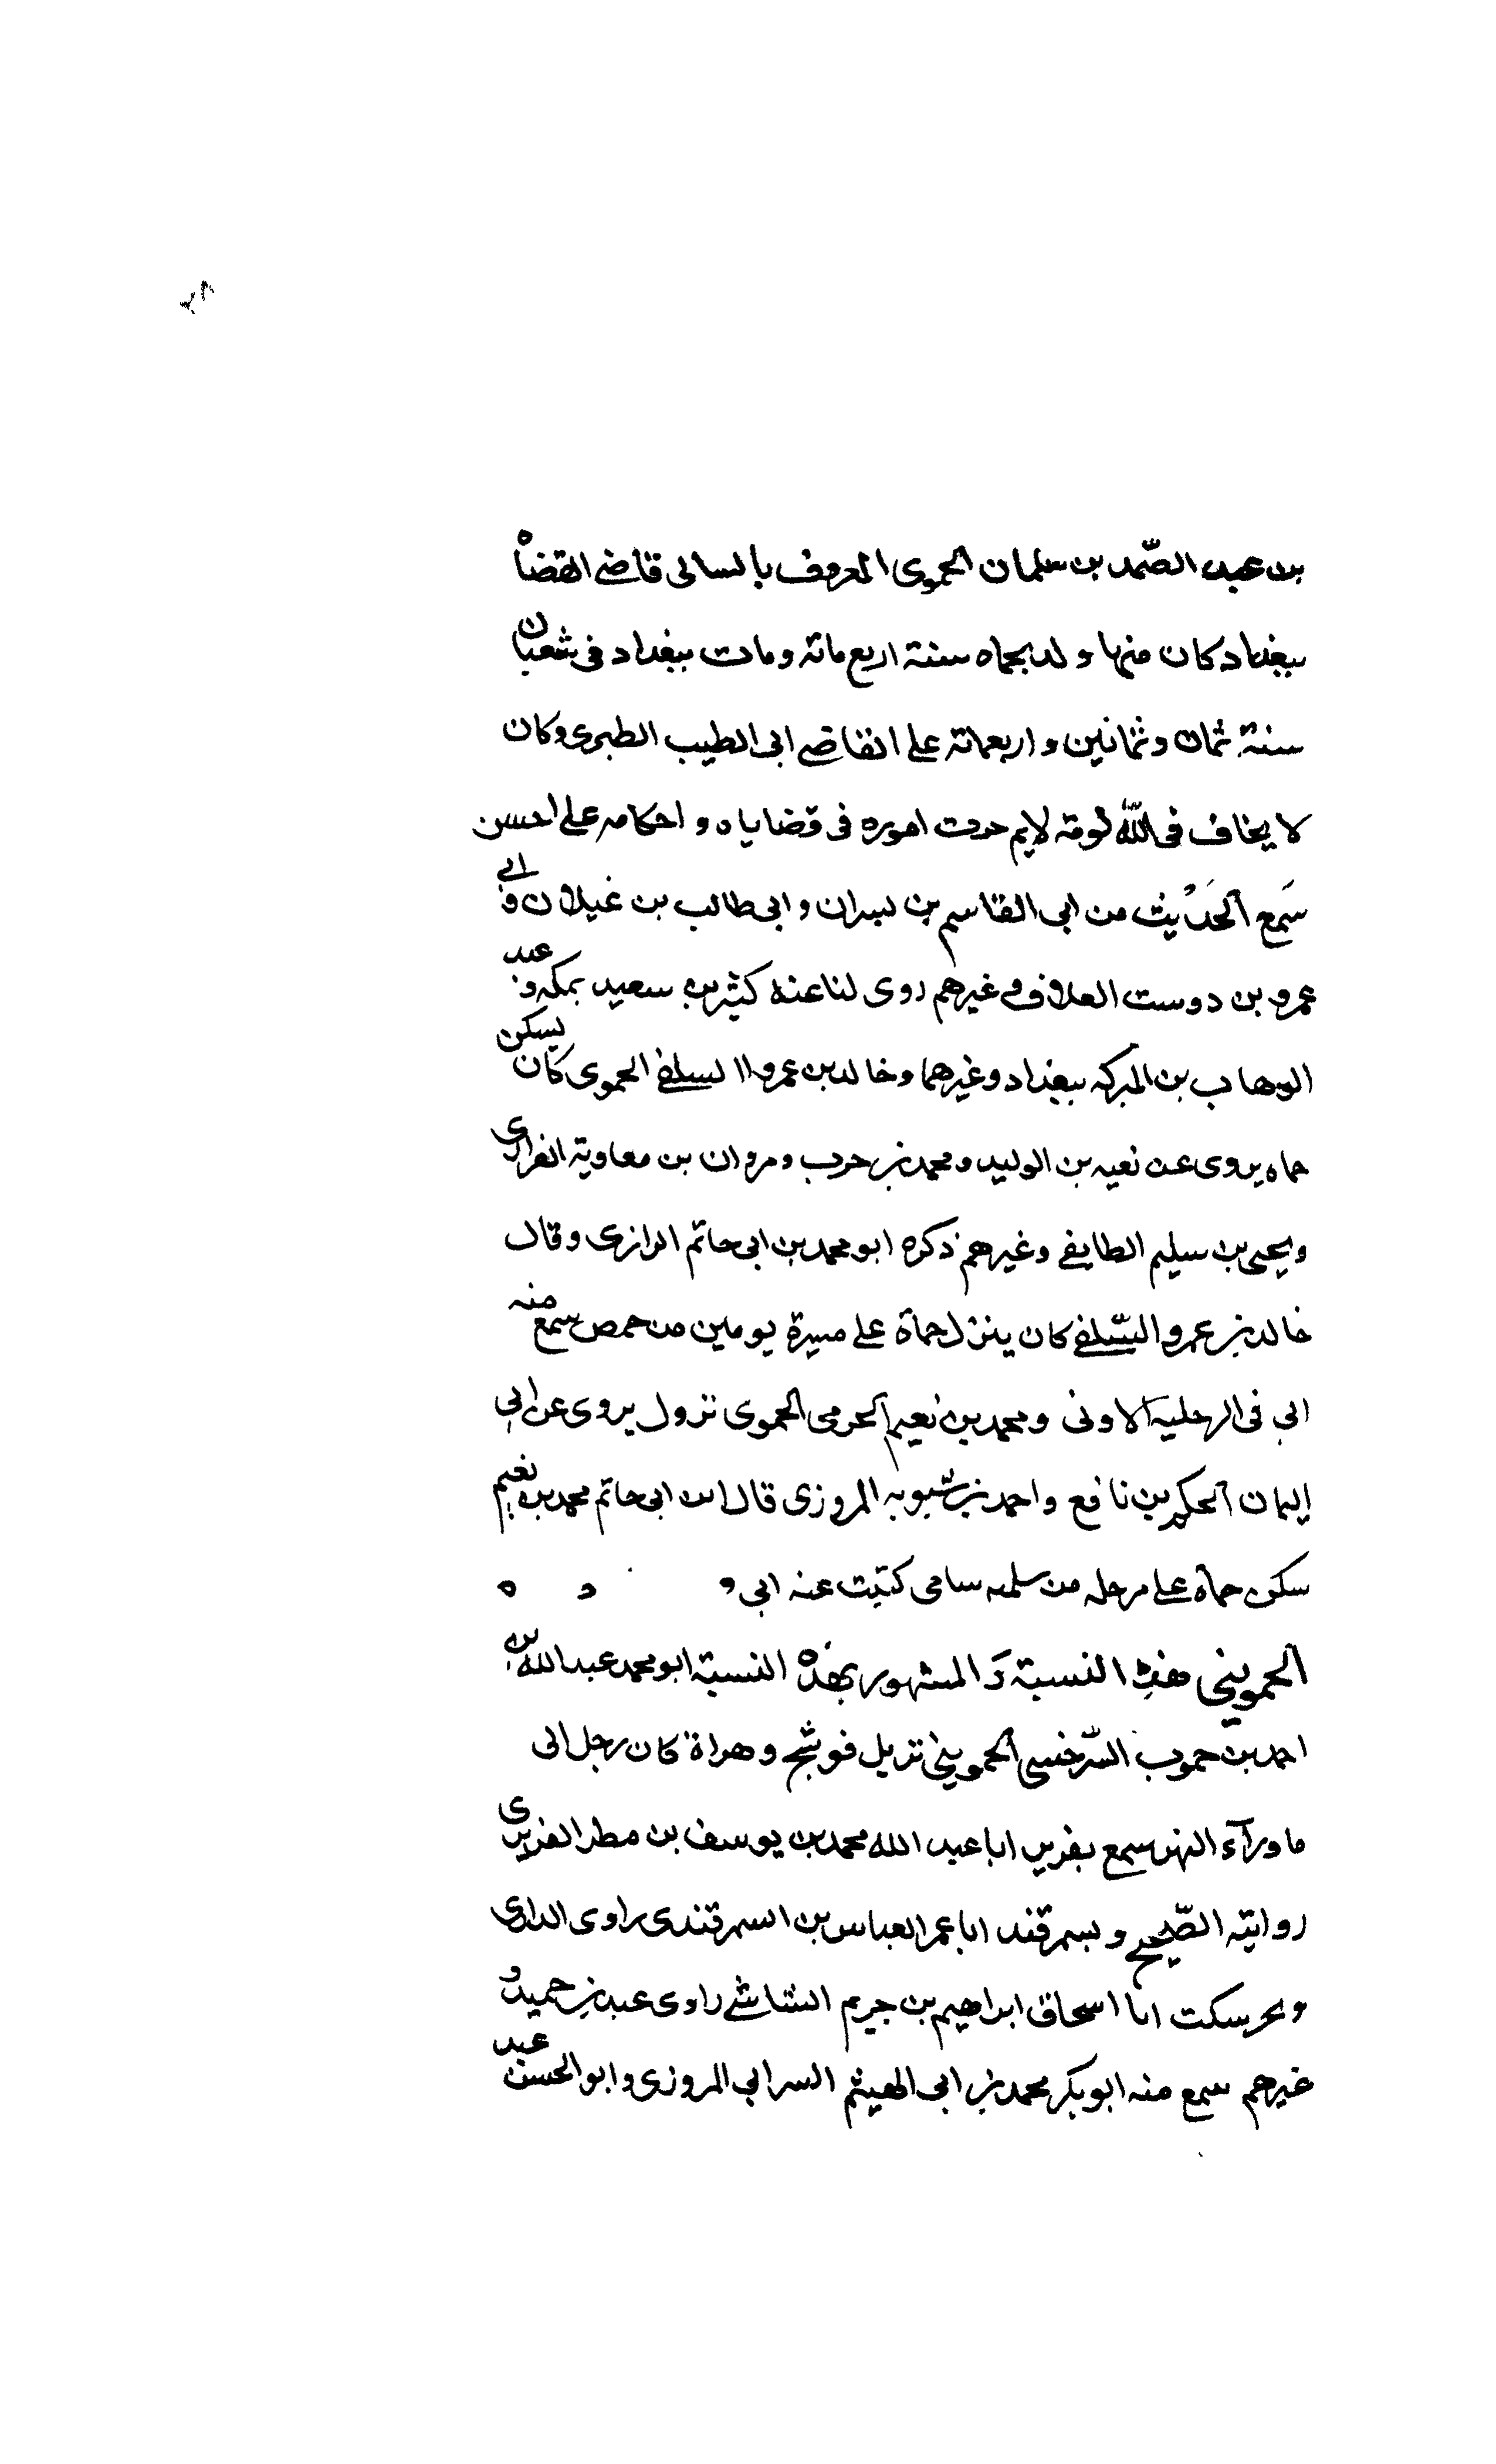 ٢٨
بن عبد الصّمد بن سلمان الحموى المعروف بالسالى قاضى القضاه
ببغداد كان منها ولد بحماه سنة اربع مائة ومات ببغداد فى شعبان
سنة ثمان وثمانين واربعمائة على القاضى ابى الطيب الطبرى وكان
لا يخاف فى الله لومة لايم حرت اموره فى قضاياه واحكامه على احسن
سَمع الحَدْيث من ابى القاسم بن لسران وابى طالب بن غيلان و ابى
عمرو بن دوست العلاف وغيرهم روى لنا عنه كثير بن سعيد بمكه و عبد
الوهاب بن المبركه ببغداد وغيرهما وخالد بن عمرو السلفى الحموى كان يسكن
حماه يروى عن نعيه بن الوليد ومحمد بن حرب ومروان بن معاوية الفزارى
ويحيى بن سليم الطايفى وغيرهم ذكره ابو محمد بن ابى حاتم الرازى وقال
خالد بن عمرو السّلفى كان ينزل حماة على مسيرة يومين من حمص سمع منه
ابى فى الرحلية الاونى ومحمد بن نعيم الحرمى الحموى نزول يروى عن ابى
اليمان الحكم بن نافع واحمد بن شّبويه المروزى قال ابن ابى حاتم محمد بن نعيم
سكن حماة على مرحله من سلميه سامى كتبت عنه ابى و د ه
الحمويني هذه النسبة دَ المشهور بهذه النسبة ابو محمد عبد الله بن
احمد بن حموب السّرخسى الحموينى نزيل فوشنج وهراة كان رحل الى
ما ورآء النهر سمع بفربر ابا عبد الله محمد بن يوسف بن مطر الفربرى
روايته الصّحيح و بسمرقند ابا عمر العباس بن السمرقندى راوى الدارى
وبحرسكت ابا اسحاق ابراهيم بن جريم الشاشى راوى عبد بن حميد و
غيرهم سمع منه ابو بكر محمد بن ابى الهيثم السرابى المروزى وابو الحسن عبد